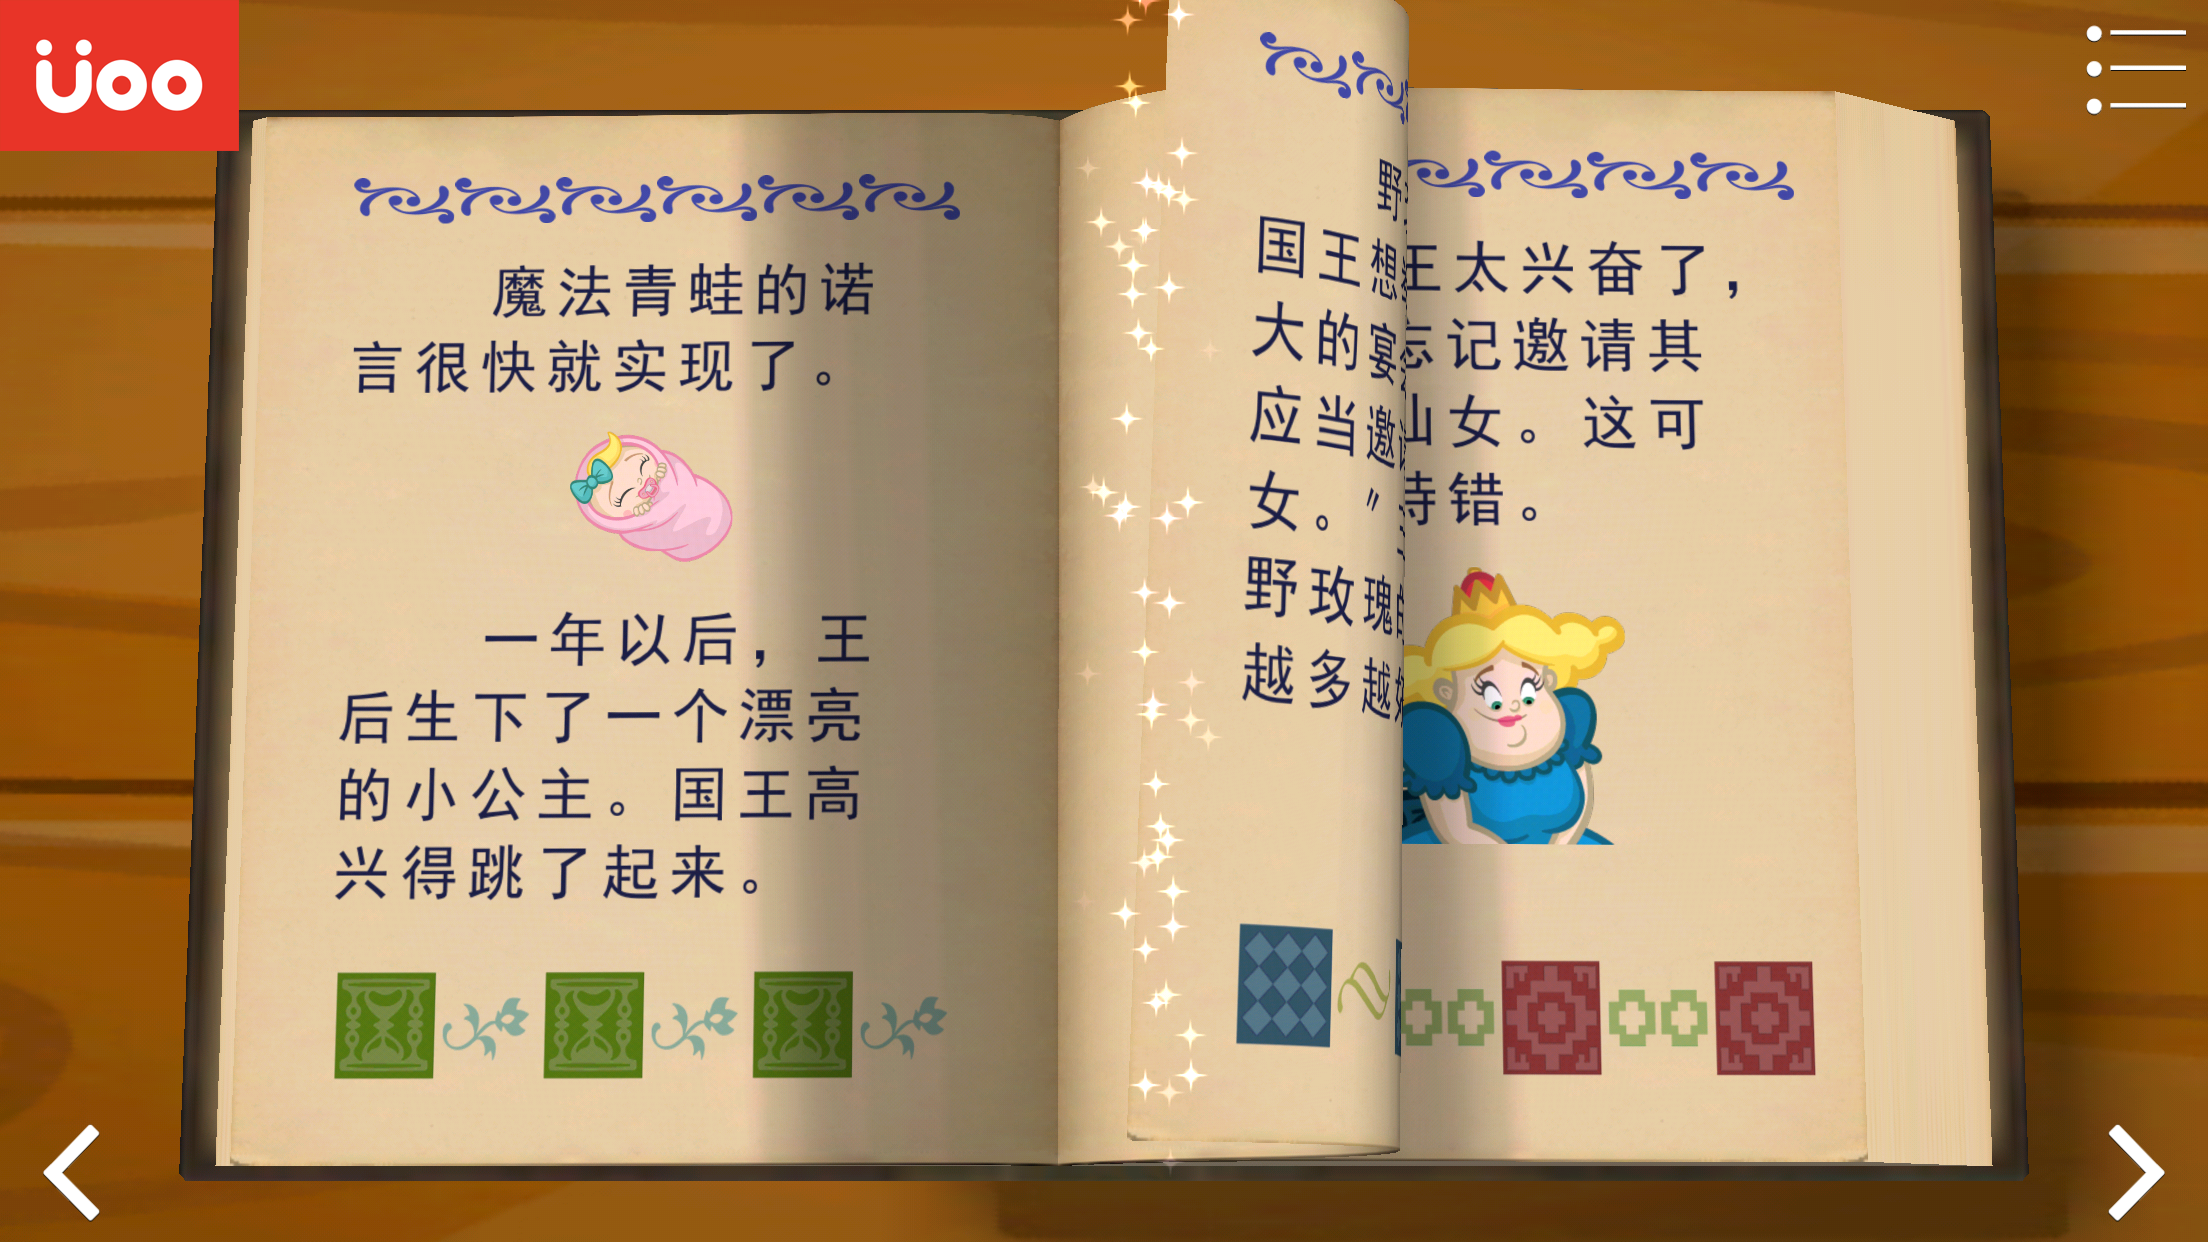 üoo
魔法青蛙的诺
言很快就实现了。
一年以后，王
后生下了一个漂亮
的小公主。国王高
兴得跳了起来。
野
国王想
大的宴
应当邀
女。”
野玫瑰
越多越
王太兴奋了，
忘记邀请其
女。这可
错。